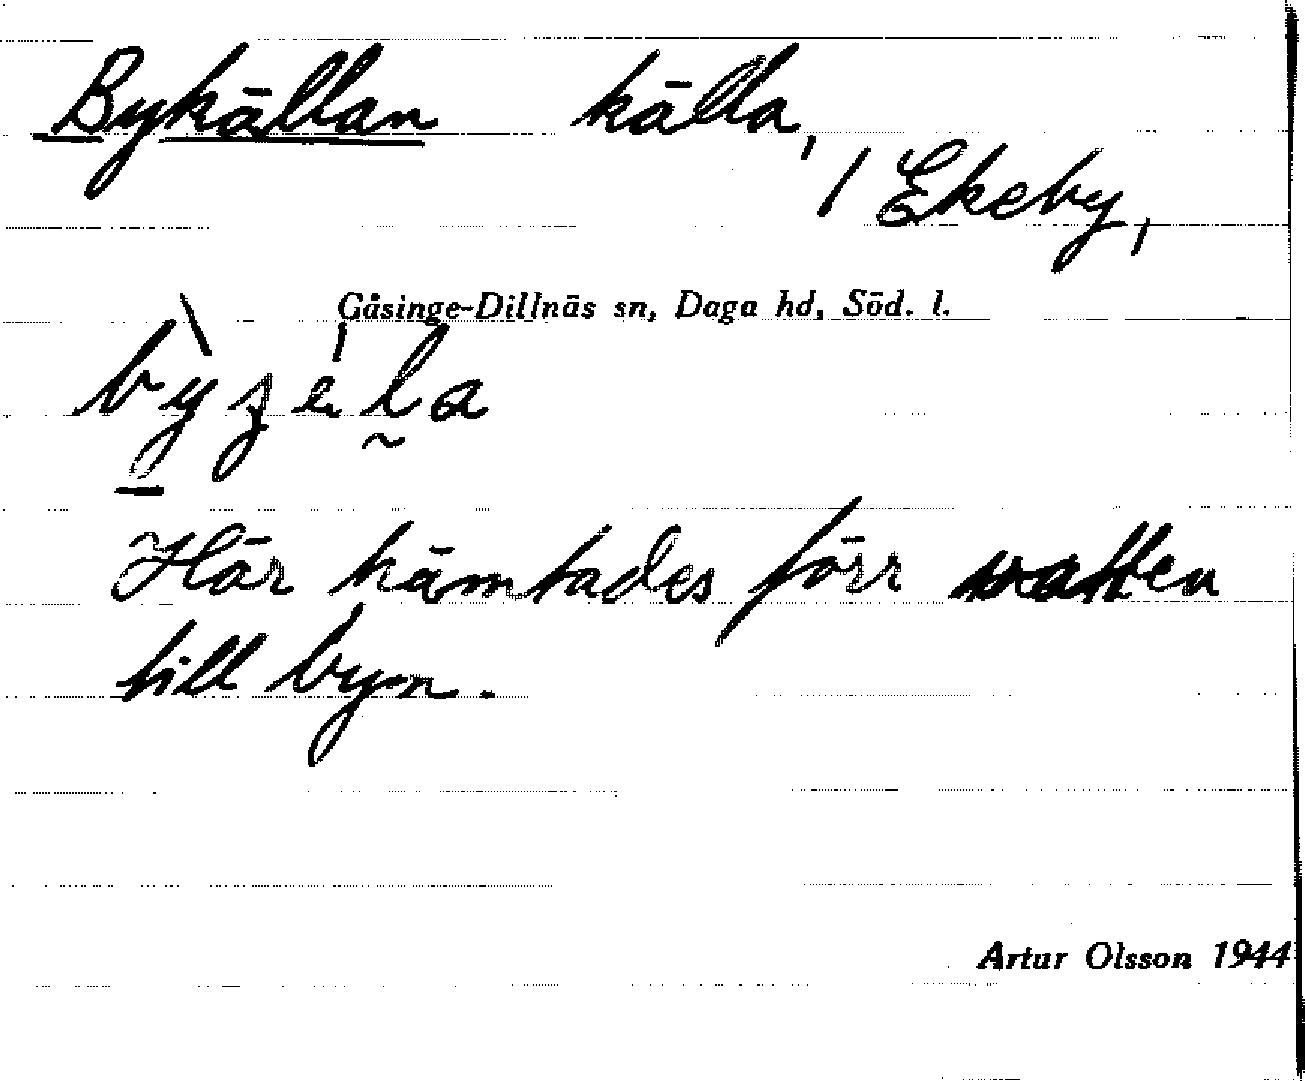 Bykällan källa,
/ Ekeby,
Gåsinge-Dillnäs sn, Daga hd, Söd. l.
Här hämtades förr vatten
till byn.
Artur Olsson 1944